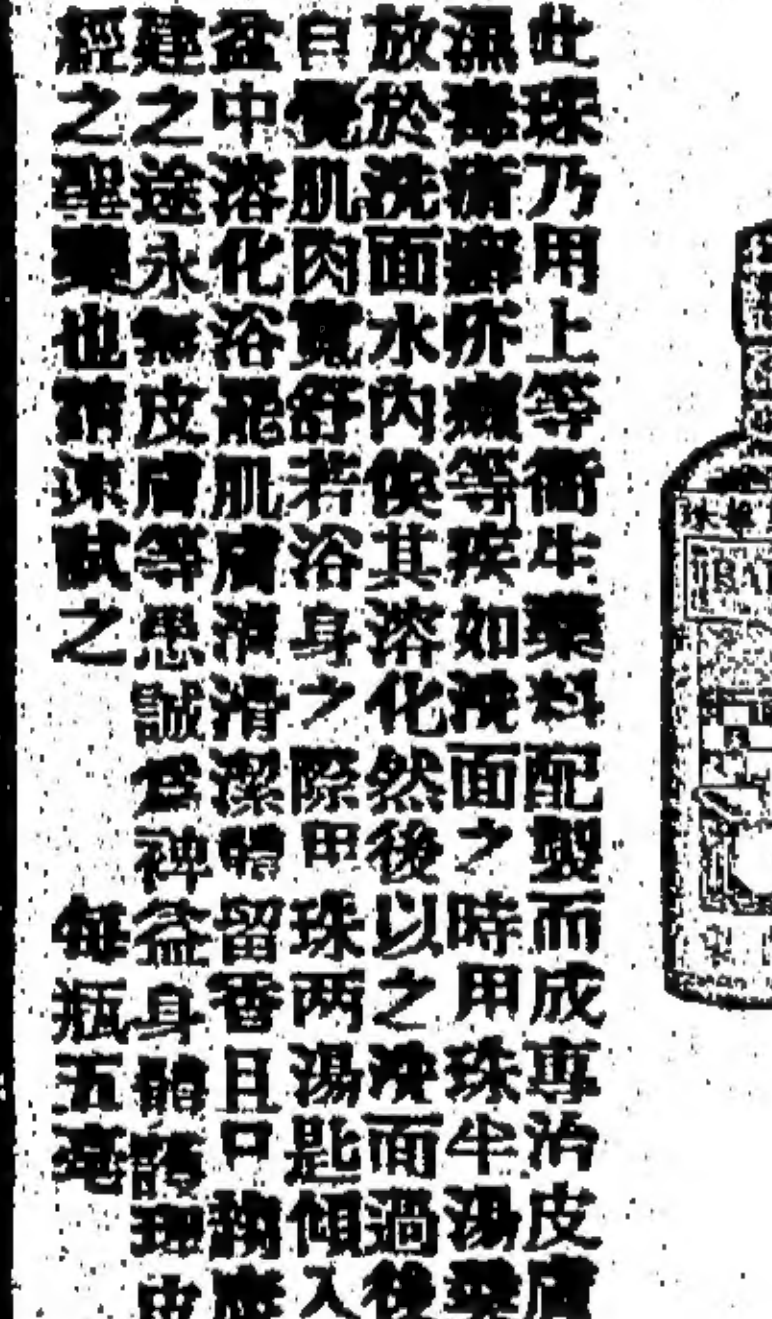 此珠乃用上等衛生藥料配製而成專治皮膚
濕毒瘡癬疥癩等疾如洗面之時用珠半湯
放於洗面水內俟其溶化然後以之洗面過後
自覺肌肉寬舒若浴身之際用珠两湯匙傾入
盆中溶化浴能肌膚潤滑潔體留香且
建之途永無皮膚等患誠為裨益身體
經之聖藥也請速試之 每瓶五毫